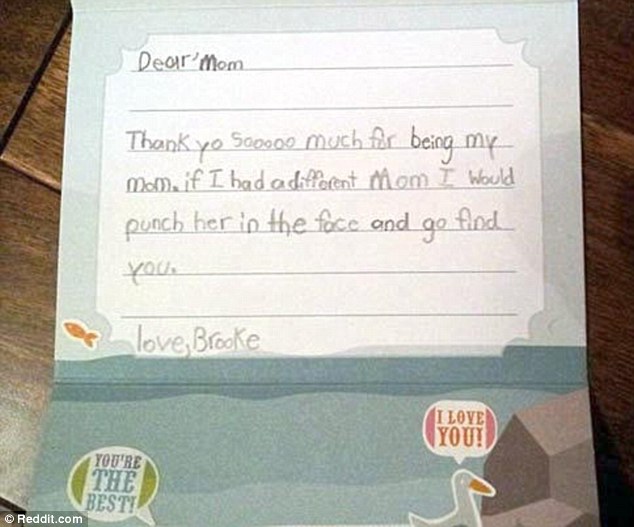 Dear Mom
Thank yo sooooo much for being my
mom. if I had a different Mom I would
punch her in the face and go find
you.
love, Brooke
I LOVE
YOU!
YOU'RE
THE
BEST!
© Reddit.com